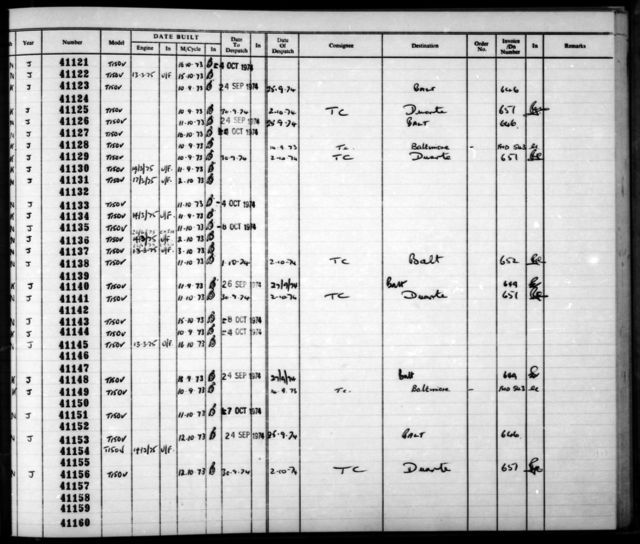 DATE BUILT
h Year Number Model Engine In M/Cycle In Date To Despatch In Date Of Despatch Consignee Destination Order No. Invoice /Dn Number In Remarks
N J 41121 T150V 16.10.73 4 OCT 1974
N J 41122 T150V 13.3.75 U/F 15.10.73
K J 41123 T150V 10.9.73 24 SEP 1974 25.9.74 BALT 646
41124
K J 41125 T150V 10.9.73 30.9.74 2.10.74 TC Duarte 651
N J 41126 T150V 11.10.73 24 SEP 1974 25.9.74 BALT 646
N J 41127 T150V 16.10.73 OCT 1974
K J 41128 T150V 10.9.73 Tc. Baltimore -
K J 41129 T150V 10.9.73 30.9.74 2.10.74 TC Duarte 651
K J 41130 T150V U/F. 11.9.73
N J 41131 T150V 17/3/75 U/F. 2.10.73
41132
N J 41133 T150V 11.10.73 -4 OCT 1974
K J 41134 T150V 14/3/75 U/F 11.9.73
N J 41135 T150V 11.10.73 -8 OCT 1974
N J 41136 T150V U/F 2.10.73
N J 41137 T150V 13.3.75 U/F 3.10.73
N J 41138 T150V 11.10.73 1.10.74 2.10.74 TC Balt 652
41139
K J 41140 T150V 11.9.73 26 SEP 1974 27/9/74 Balt 649
N J 41141 T150V 11.10.73 30.9.74 2.10.74 TC Duarte 651
41142
N J 41143 T150V 15.10.73 8 OCT 1974
K J 41144 T150V 10.9.73 4 OCT 1974
N J 41145 T150V 13.3.75 U/F 16.10.73
41146
41147
K J 41148 T150V 9.73 24 SEP 1974 27/9/74 Balt 649
K J 41149 T150V 10.9.73 Tc. Baltimore -
41150
N J 41151 T150V 11.10.73 7 OCT 1974
41152
N J 41153 T150V 12.10.73 24 SEP 1974 25.9.74 BALT 646
41154 T150V U/F.
41155
N J 41156 T150V 12.10.73 30.9.74 2.10.74 TC Duarte 651
41157
41158
41159
41160